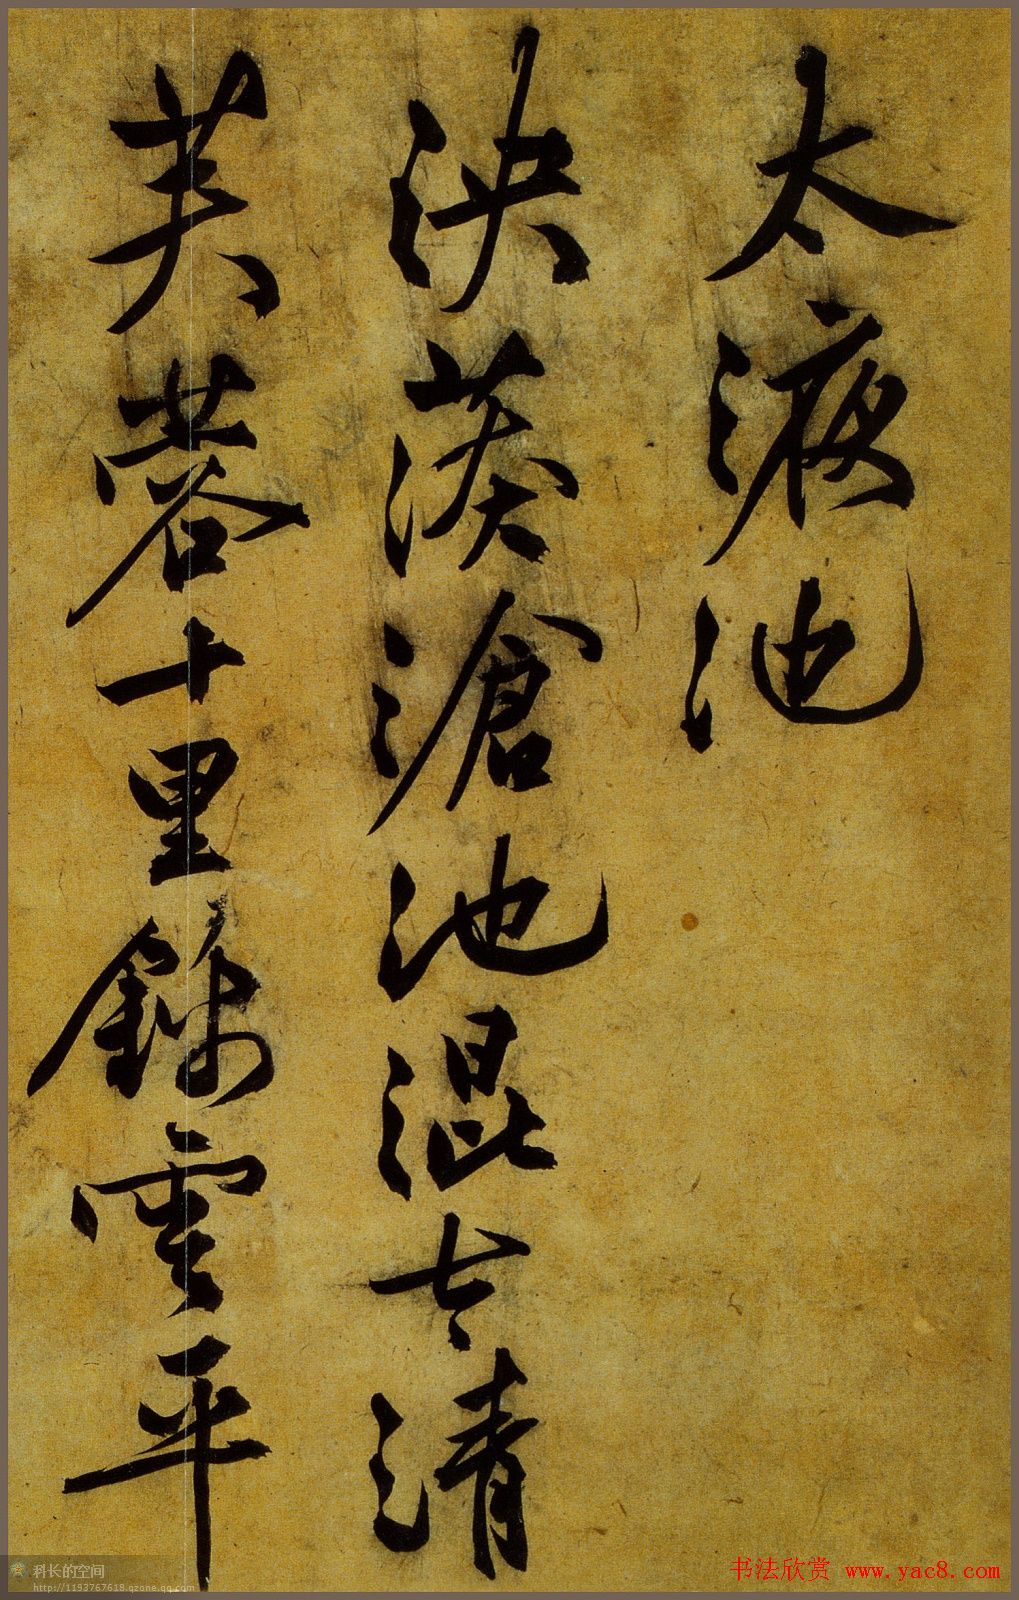 太液池
泱漭滄池混太清
芙蓉十里錦雲平
科长的空间
http://1193767618.qzone.qq.com
书法欣赏 www.yac8.com